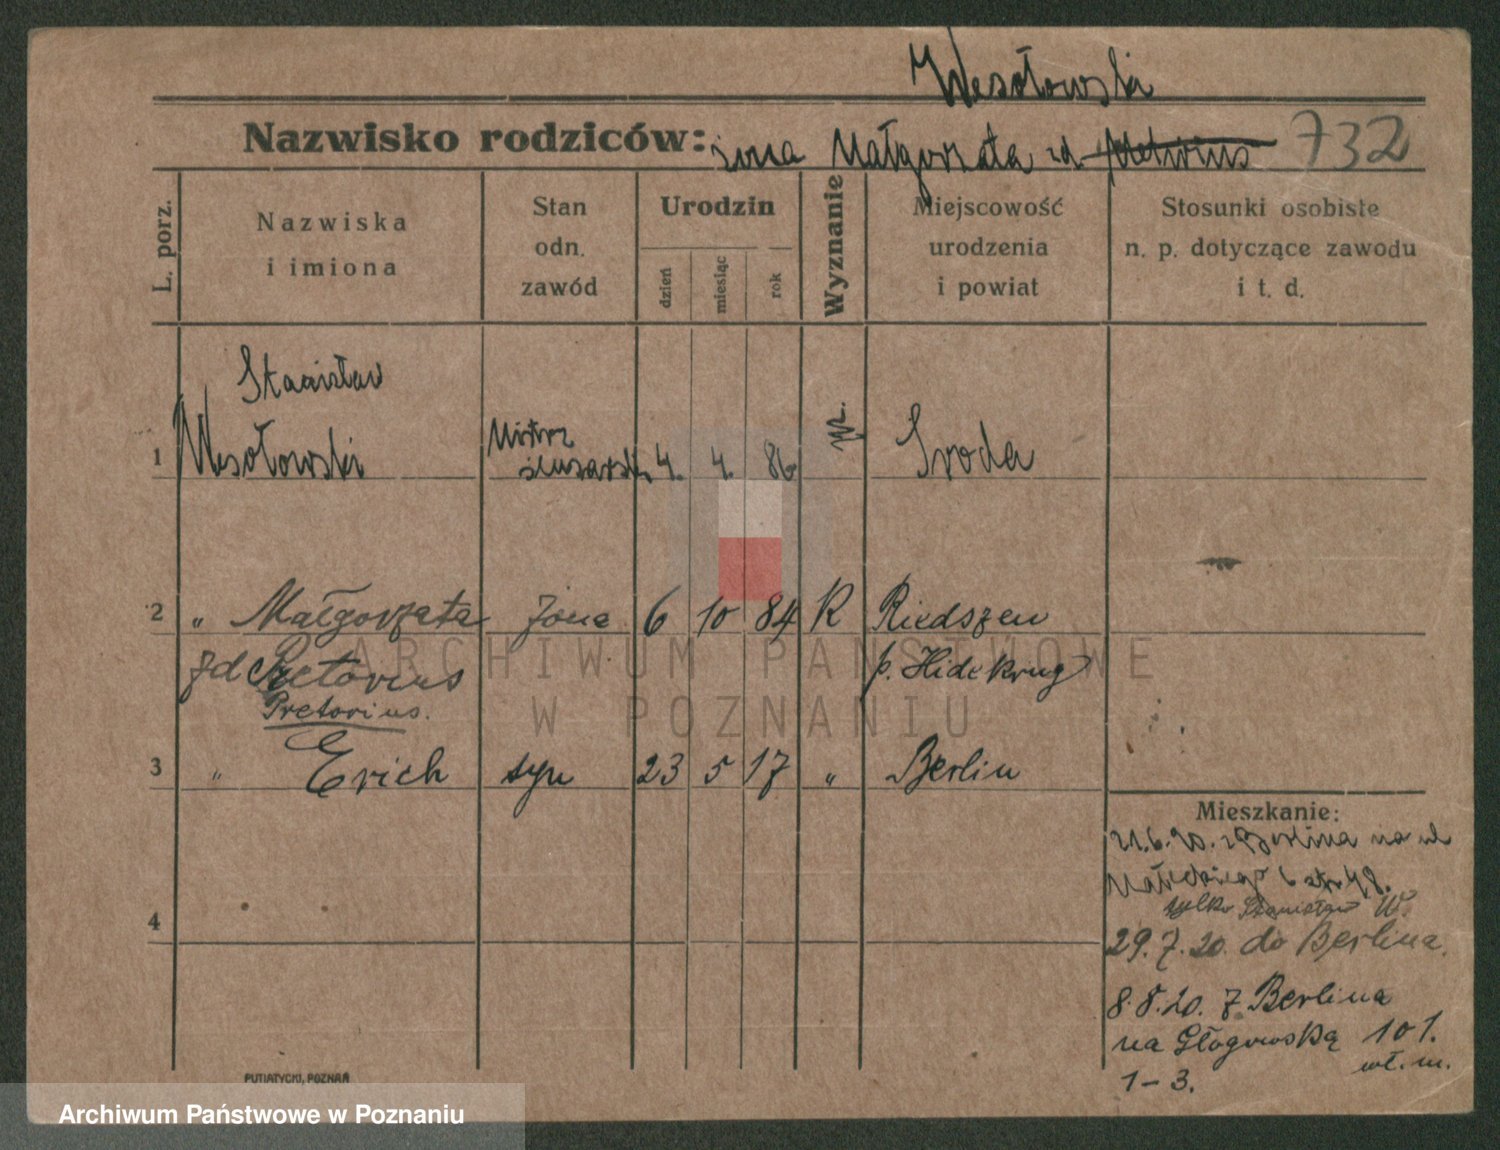 Wesołowski
Nazwisko rodziców: żona Małgorzata zd Pretorius 732
L. porz.
Nazwiska
i imiona
Stan
odn.
zawód
Urodzin
dzień
miesiąc
rok
Wyznanie
Miejscowość
urodzenia
i powiat
Stosunki osobiste
n. p. dotyczące zawodu
i t. d.
Stanisław
1 Wesołowski Mistrz ślusarski 4. 4. 86 Sroda
2 " Małgorzata żona 6 10 84 K Riedszen
zd Pretorius p. Hidekrug
Pretorius.
3 " Erich syn 23 5 17 " Berlin
4
Mieszkanie:
21.6.20. z Berlina na ul
Małeckiego 6 48.
tylko Stanisław W.
29.7.20. do Berlina.
8.8.20. z Berlina
na Głogowską 101.
wł. m.
1-3.
PUTIATYCKI, POZNAŃ
ARCHIWUM PAŃSTWOWE
W POZNANIU
Archiwum Państwowe w Poznaniu